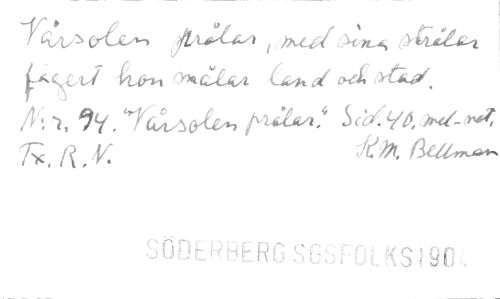 Vårsolen prålar, med sina strålar
fagert hon målar land och stad.
N:r. 94. "Vårsolen prålar." Sid. 40. mel-not.
Tx. R. N. K. M. Bellman
SÖDERBERG SGSFOLKS1904